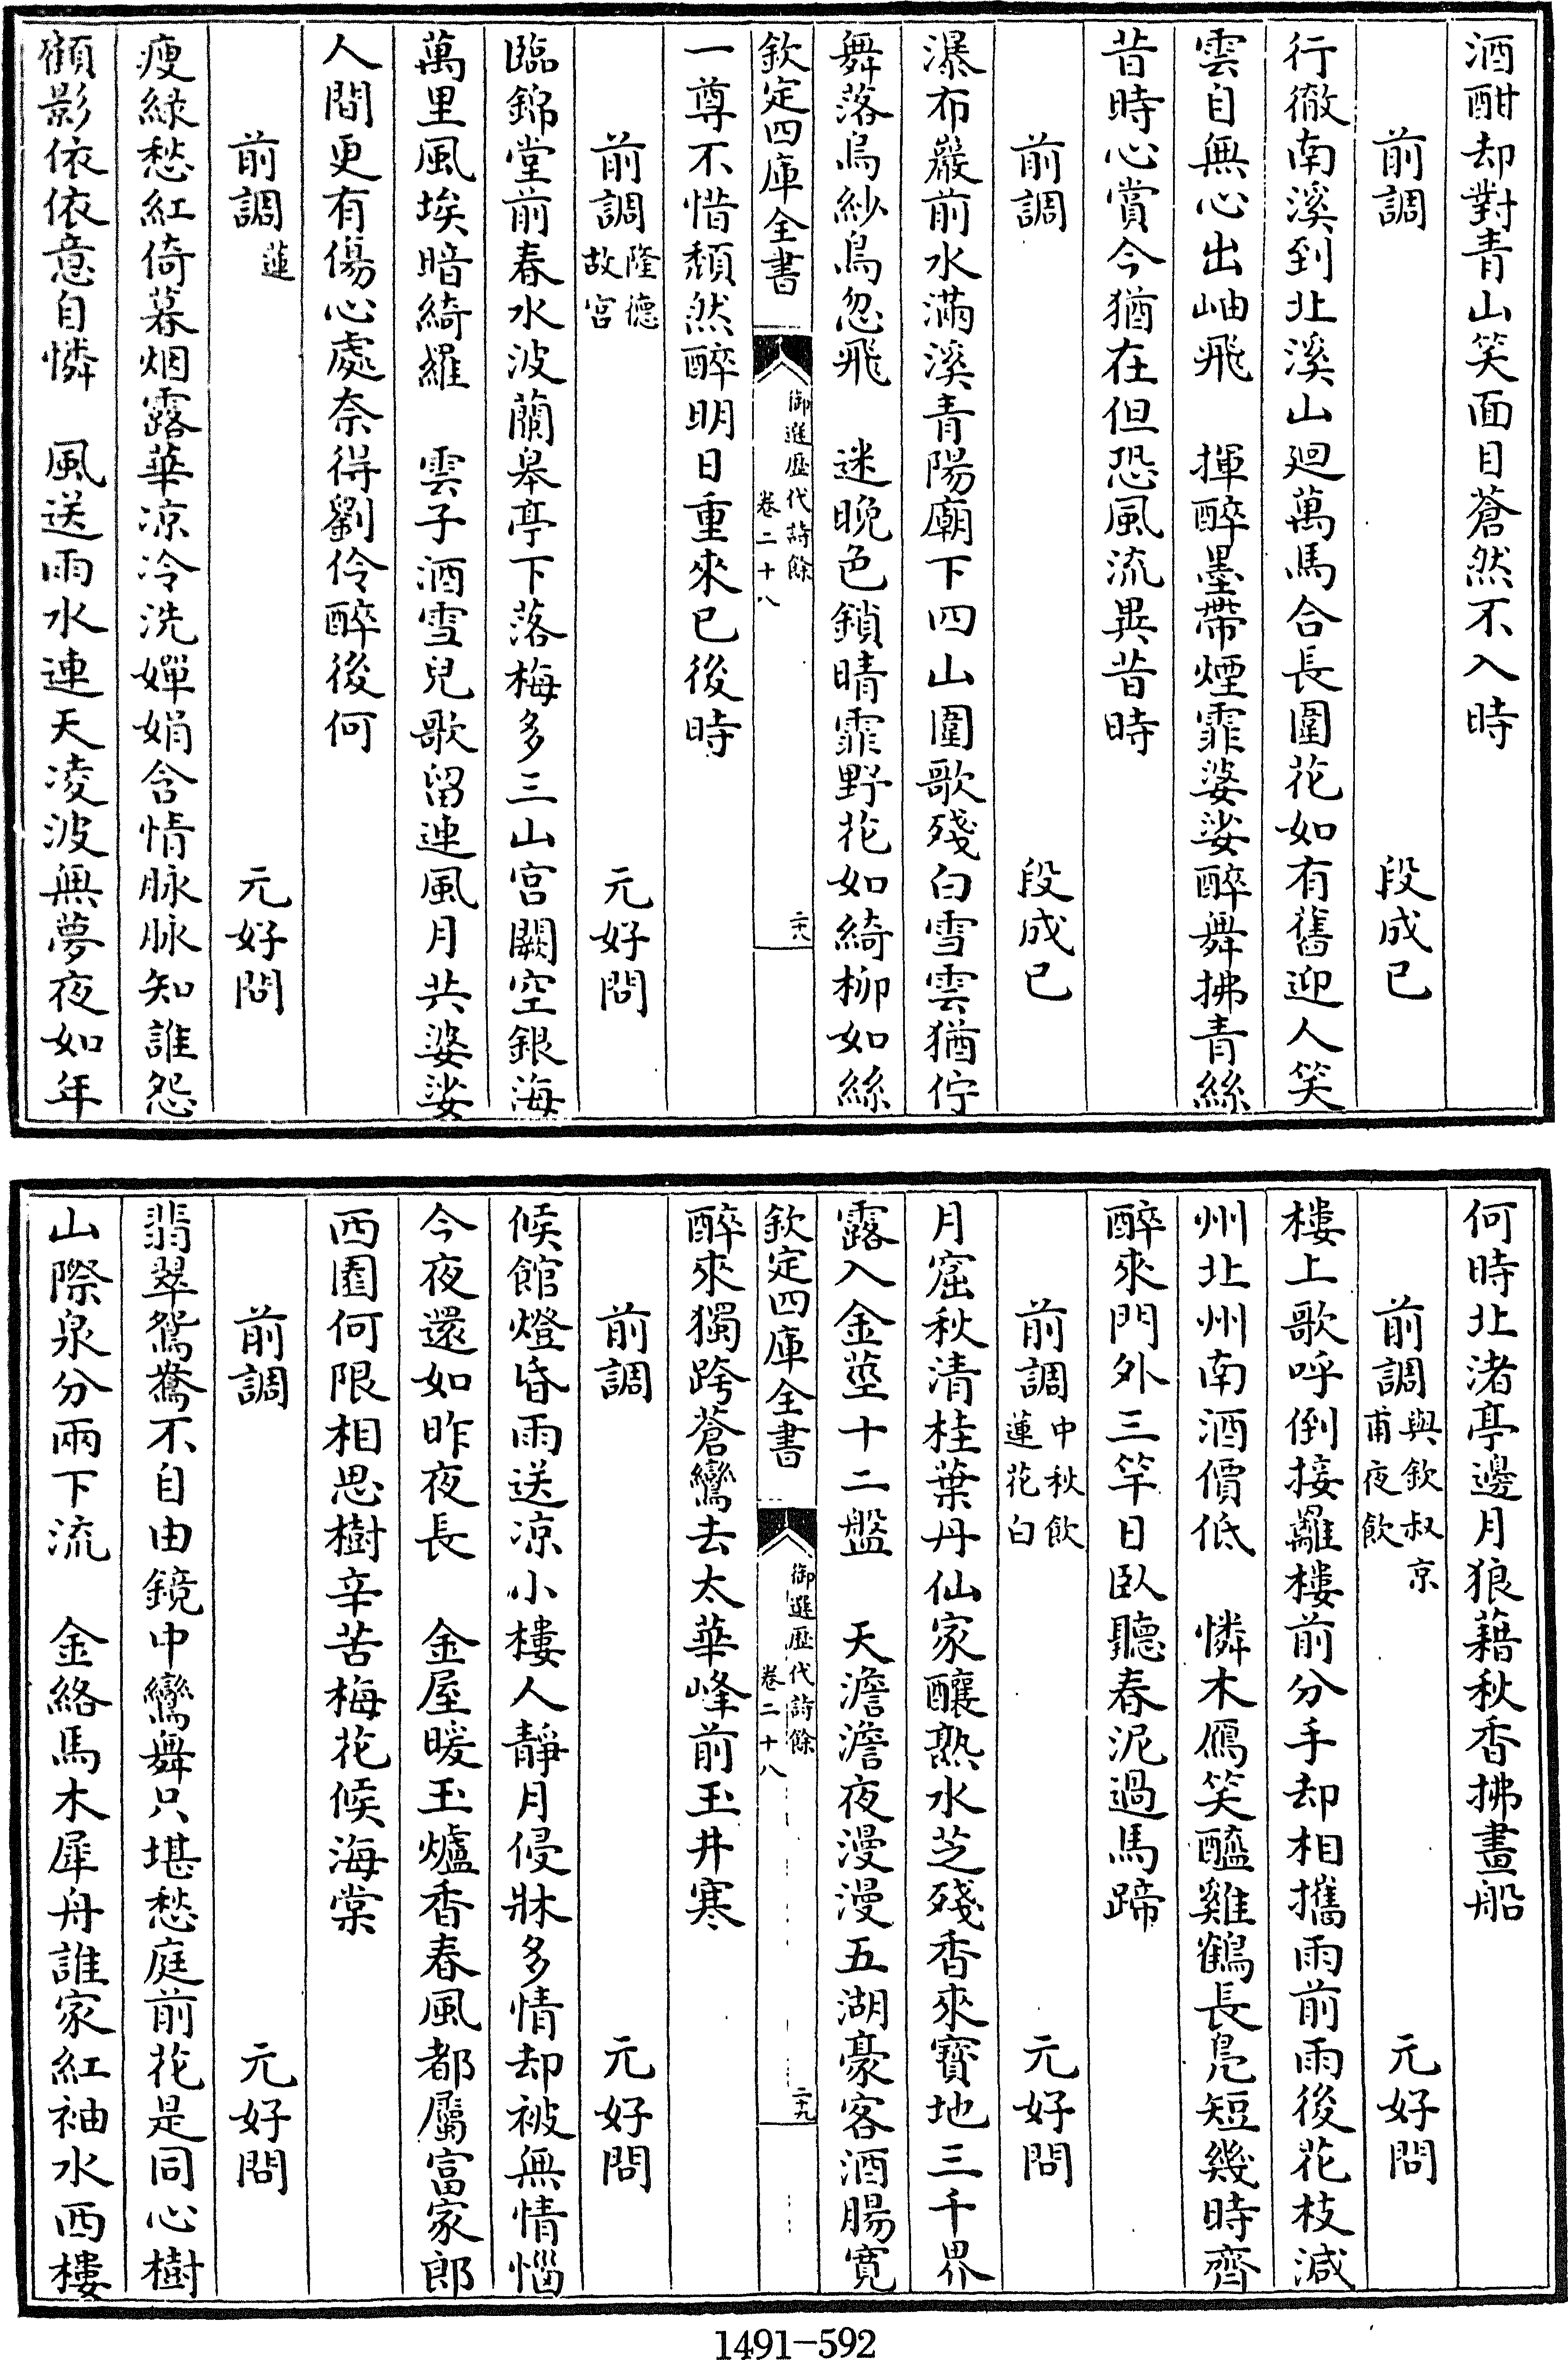 酒酣却對青山笑面目蒼然不入時
前調
段成己
行徹南溪到北溪山廻萬馬合長圍花如有舊迎人笑
雲自無心出岫飛　揮醉墨帶煙霏婆娑醉舞拂青絲
昔時心賞今猶在但恐風流異昔時
前調
段成己
瀑布巖前水滿溪青陽廟下四山圍歌殘白雪雲猶佇
舞落烏紗鳥忽飛　迷晚色鎖晴霏野花如綺柳如絲
欽定四庫全書
御選歷代詩餘
卷二十八
二十八
一尊不惜頹然醉明日重來已後時
前調
隆德
故宫
元好問
臨錦堂前春水波蘭皋亭下落梅多三山宫闕空銀海
萬里風埃暗綺羅　雲子酒雪兒歌留連風月共婆娑
人間更有傷心處奈得劉伶醉後何
前調
蓮
元好問
瘦綠愁紅倚暮烟露華凉冷洗嬋娟含情脉脉知誰怨
顧影依依意自憐　風送雨水連天凌波無夢夜如年
何時北渚亭邊月狼藉秋香拂畫船
前調
與欽叔京
甫夜飲
元好問
樓上歌呼倒接䍦樓前分手却相攜雨前雨後花枝減
州北州南酒價低　憐木鴈笑醯雞鶴長鳧短幾時齊
醉來門外三竿日臥聽春泥過馬蹄
前調
中秋飲
蓮花白
元好問
月窟秋清桂葉丹仙家釀熟水芝殘香來寳地三千界
露入金莖十二盤　天澹澹夜漫漫五湖豪客酒腸寛
欽定四庫全書
御選歷代詩餘
卷二十八
二十九
醉來獨跨蒼鸞去太華峰前玉井寒
前調
元好問
候館燈昏雨送凉小樓人靜月侵牀多情却被無情惱
今夜還如昨夜長　金屋暖玉爐香春風都屬富家郎
西園何限相思樹辛苦梅花候海棠
前調
元好問
翡翠鴛鴦不自由鏡中鸞舞只堪愁庭前花是同心樹
山際泉分兩下流　金絡馬木犀舟誰家紅袖水西樓
1491-592